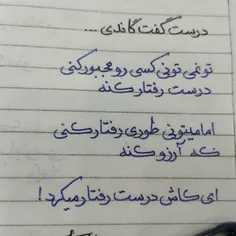 درست گفت گاندی ...
تو نمی تونی کسی رو مجبور کنی
درست رفتار کنه
اما میتونی طوری رفتار کنی
که آرزو کنه
ای کاش درست رفتار میکرد!